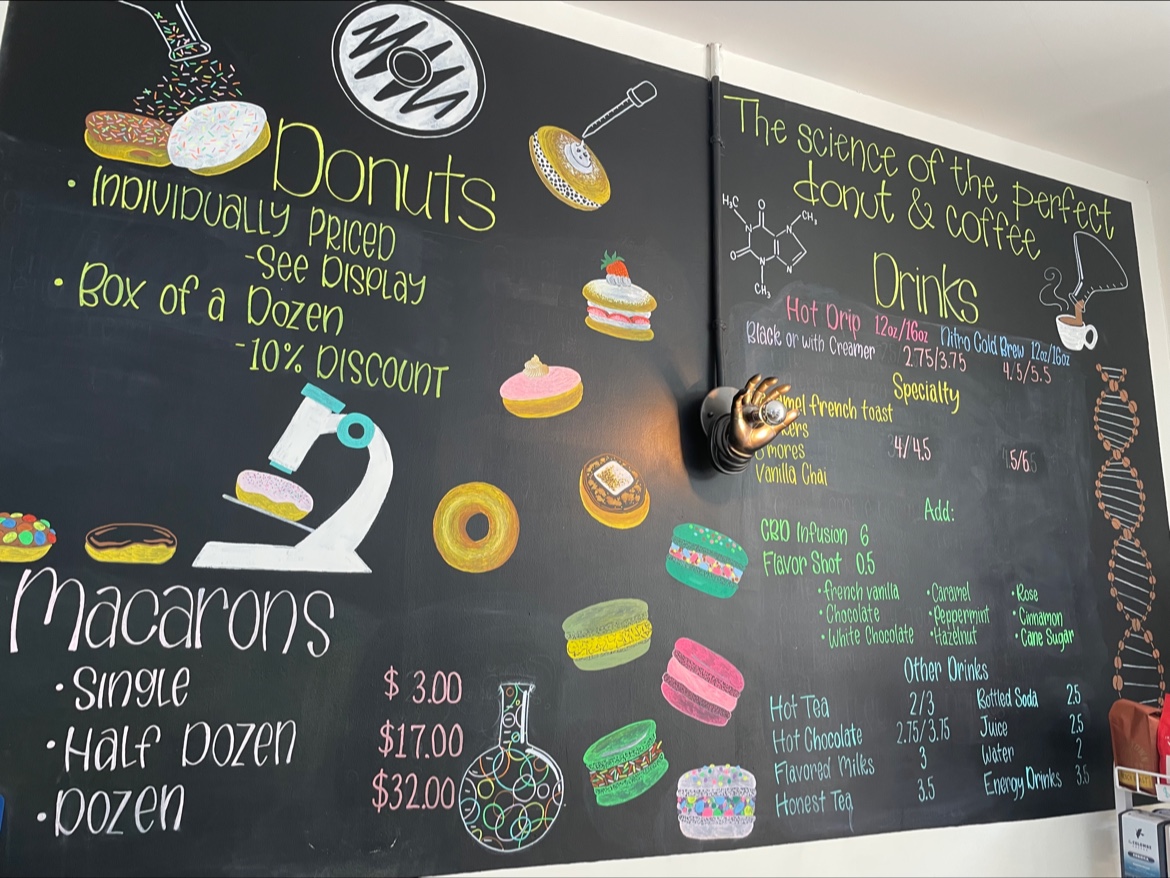 Donuts
• Individually Priced
-See Display
• Box of a Dozen
-10% Discount
Macarons
• Single $ 3.00
• Half Dozen $17.00
• Dozen $32.00
The science of the perfect
donut & coffee
H₃C O CH₃
N N
O N N
CH₃
Drinks
Hot Drip 12oz/16oz Nitro Cold Brew 12oz/16oz
Black or with Creamer 2.75/3.75 4.5/5.5
Specialty
french toast
S'mores 4/4.5 5/6
Vanilla Chai
Add:
CBD Infusion 6
Flavor Shot 0.5
• french vanilla • Caramel • Rose
• Chocolate • Peppermint • Cinnamon
• White Chocolate • Hazelnut • Cane Sugar
Other Drinks
Hot Tea 2/3 Bottled Soda 2.5
Hot Chocolate 2.75/3.75 Juice 2.5
Flavored Milks 3 Water 2
Honest Tea 3.5 Energy Drinks 3.5